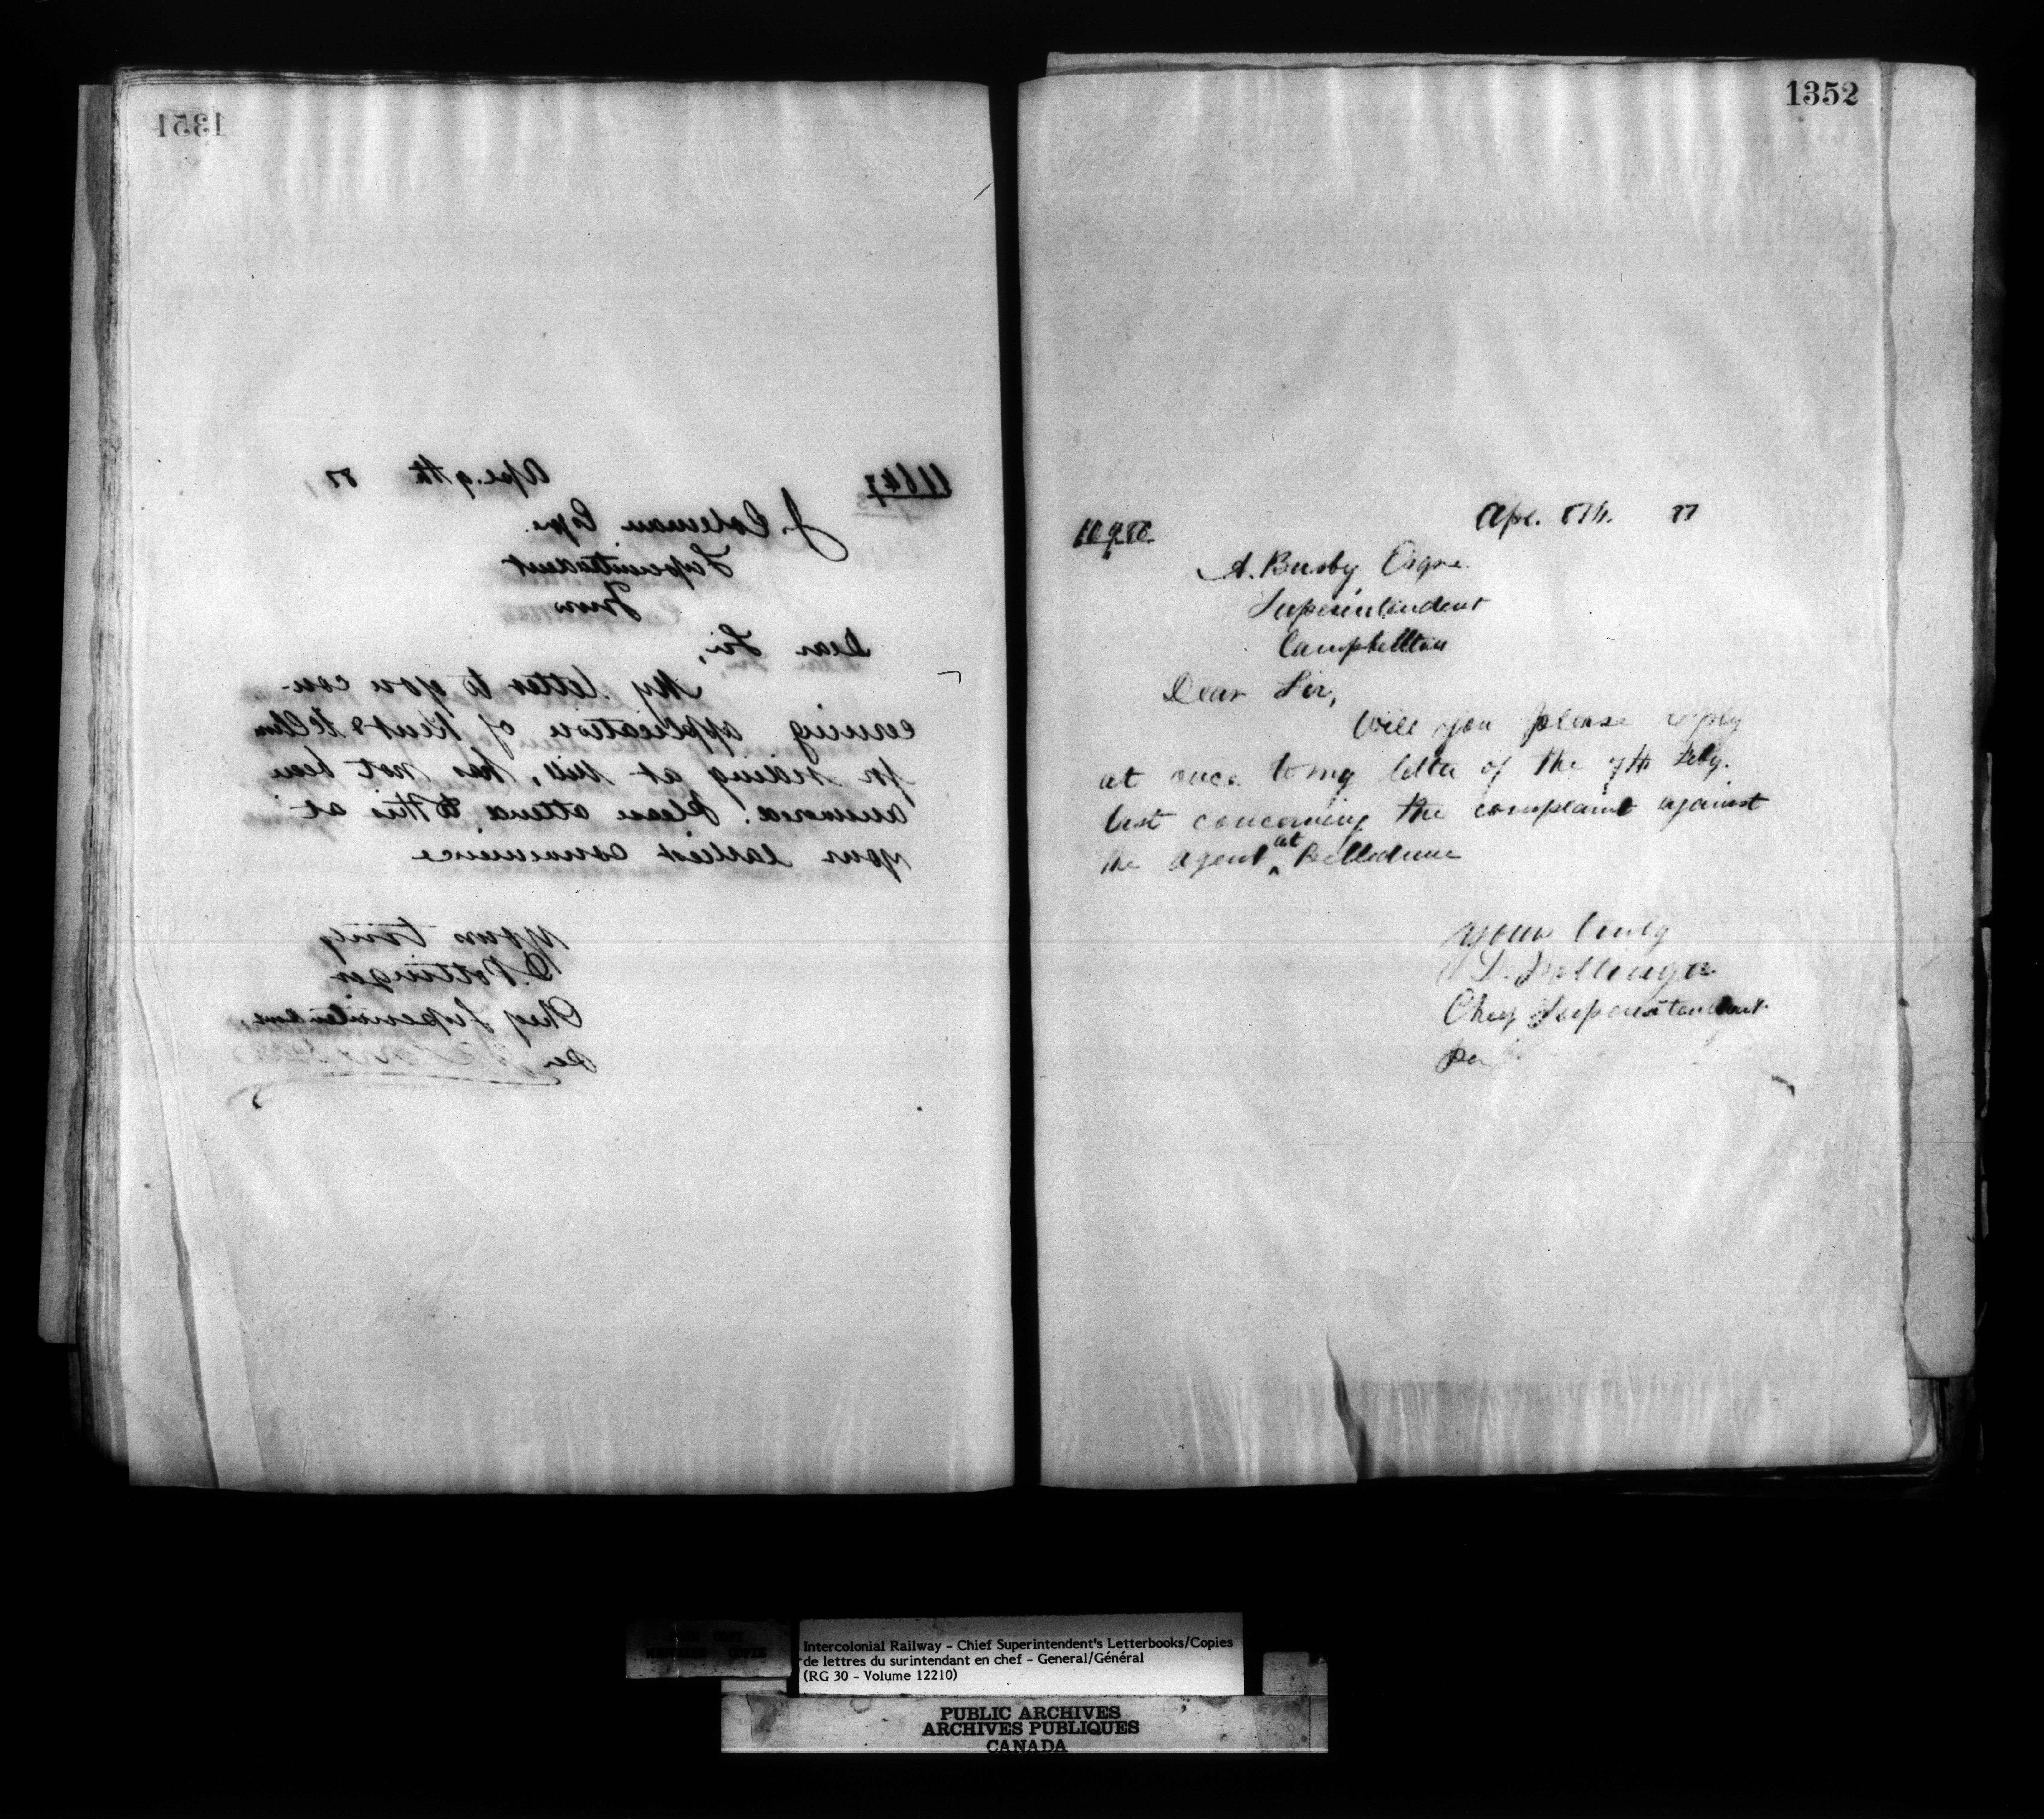 1351
11647
Apl. 9th 87,
J. Coleman Esqre.
Superintendent
Truro
Dear Sir,
My letter to you con-
cerning application of Kent &
for siding at Mill, has not been
answered. Please attend to this at
your earliest convenience
Yours truly
D. Pottinger
Chief Superintendent,
Per
1352
Apl. 8th. 87
A. Busby Esqre.
Superintendent
Campbellton
Dear Sir,
Will you please reply
at once to my letter of the 7th Feby.
last concerning the complaint against
the agent ^at Belledune
Yours truly
D. Pottinger
Chief Superintendent.
Per
Intercolonial Railway - Chief Superintendent's Letterbooks/Copies
de lettres du surintendant en chef - General/Général
(RG 30 - Volume 12210)
PUBLIC ARCHIVES
ARCHIVES PUBLIQUES
CANADA